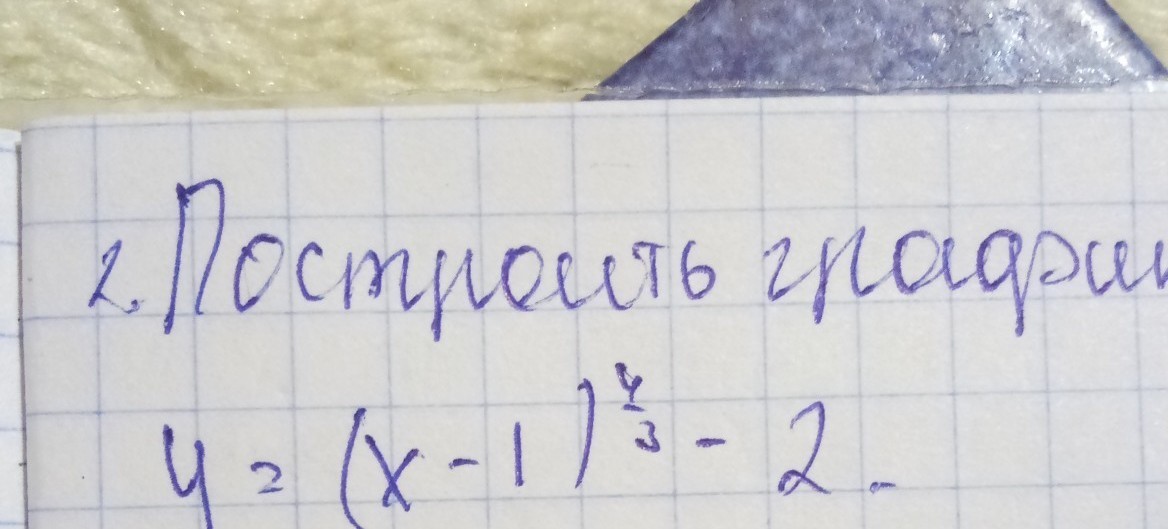 2. Построить графи
y = (x - 1)^{4/3} - 2.